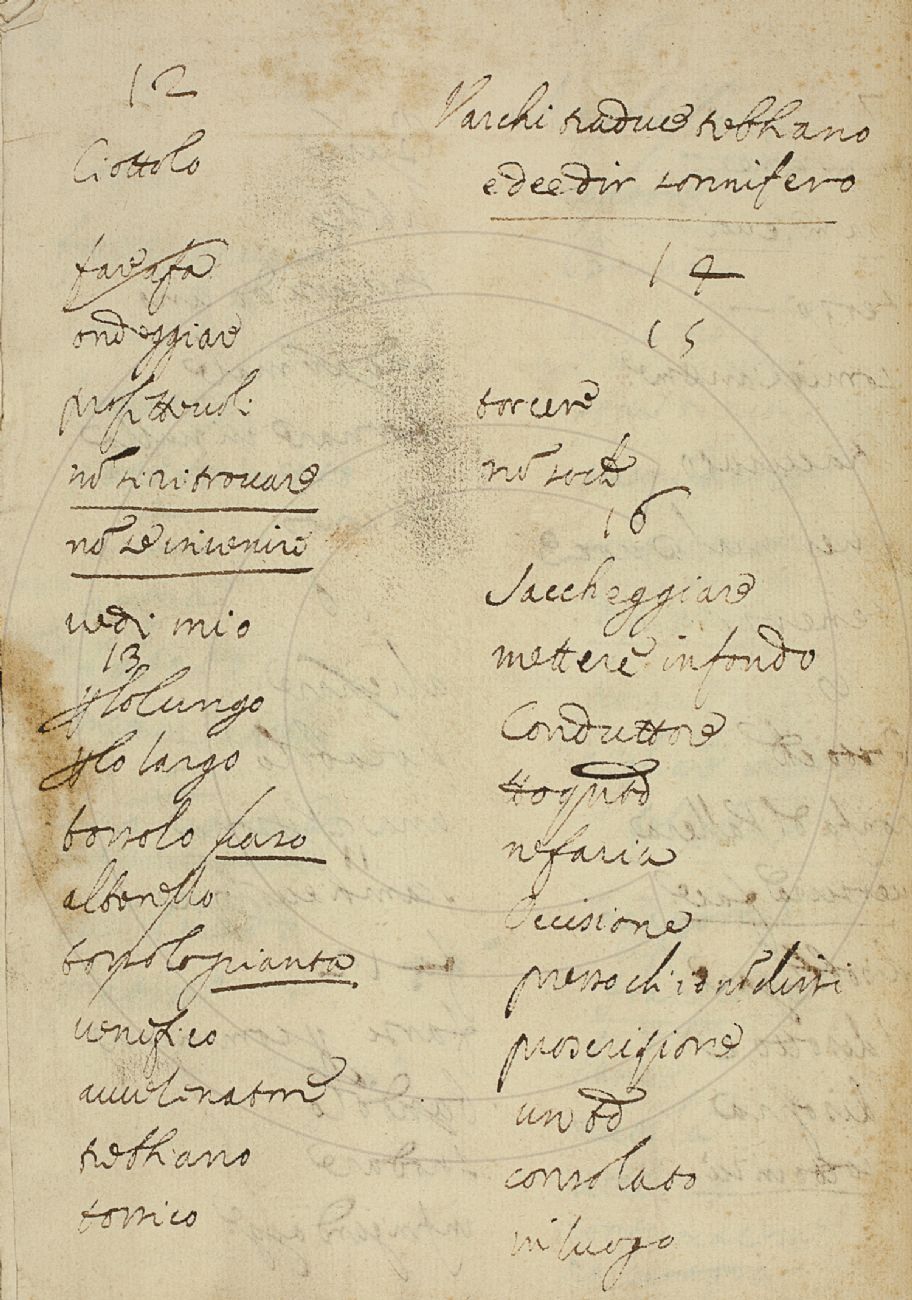 12
Ciottolo
farafa
ondeggiare
profittevoli
nō si ritrovare
nō se invenire
vedi mio
13
lo lungo
lo largo
bossolo vaso
alberello
bossolo pianta
venefico
avvelenatore
trebbiano
tossico
Varchi traduce trebbiano
e dee dir sonnifero
14
15
torcere
nō so ch
16
Saccheggiare
mettere in fondo
Conduttore
nefaria
Decisione
presso di io nō dissi
proscrizione
un
consolato
in luogo